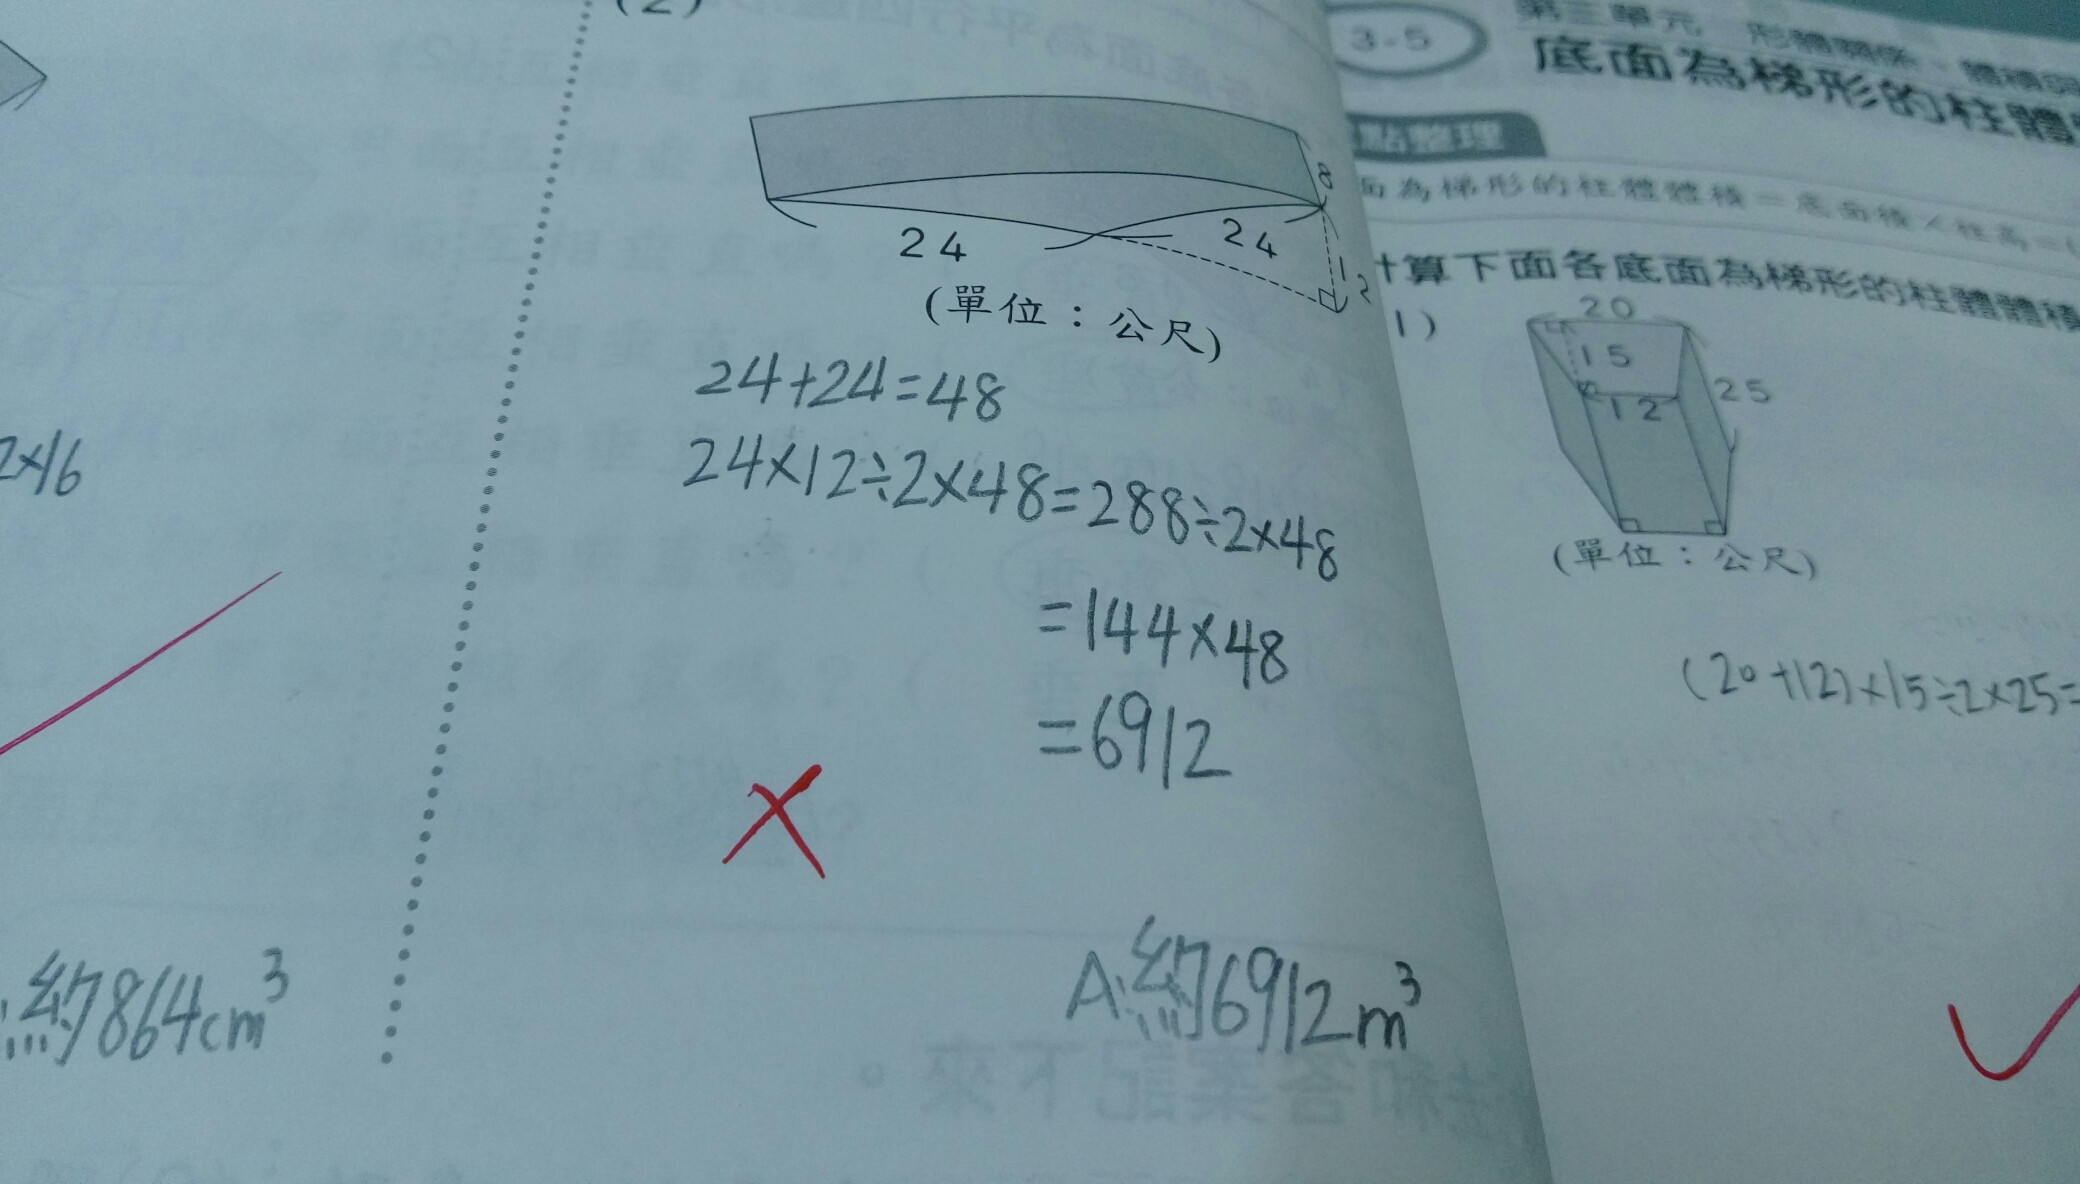 (2)
8
24
24
12
(單位：公尺)
24+24=48
24×12÷2×48=288÷2×48
=144×48
=6912
A:約6912m³
2×16
約864cm³
3-5
第三單元 形體關係、體積與
底面為梯形的柱體
點整理
面為梯形的柱體體積＝底面積×柱高＝(
計算下面各底面為梯形的柱體體積
1)
20
15
12
25
(單位：公尺)
(20+12)×15÷2×25=